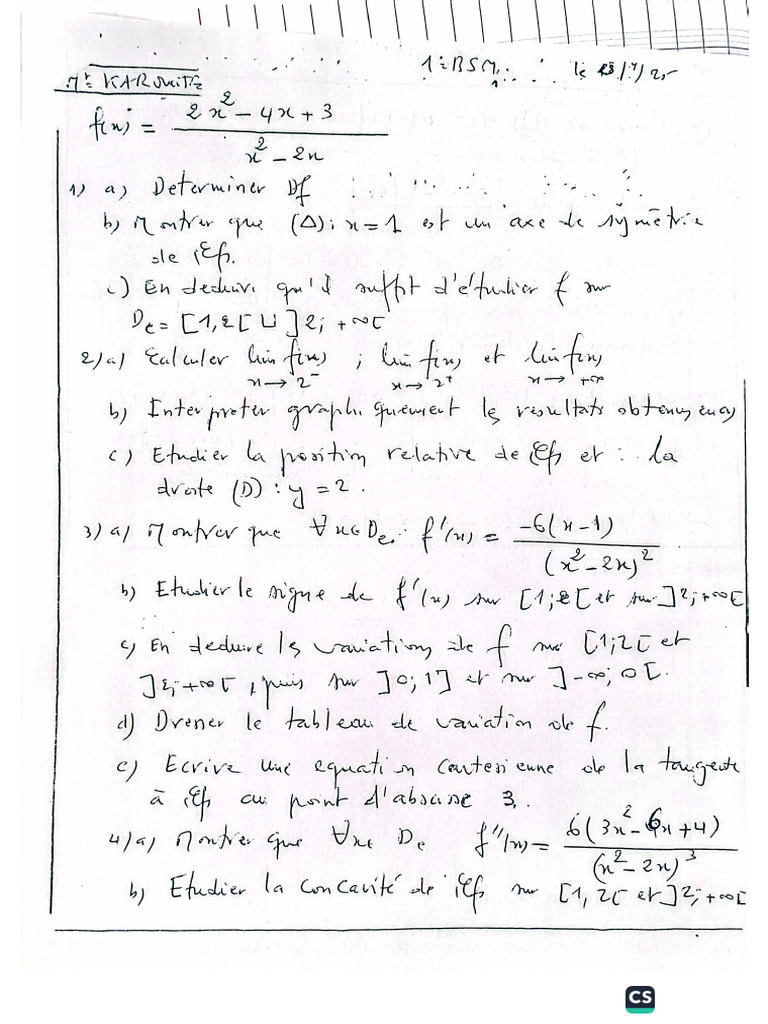 1ère BSM
Mr KAROUITE
f(x) = (2x² - 4x + 3) / (x² - 2x)
1) a) Determiner Df
b) Montrer que (Δ): x = 1 est un axe de symétrie
de Cf.
c) En deduire qu'il suffit d'étudier f sur
De = [1,2[ ∪ ]2; +∞[
2) a) Calculer lim f(x) x→2⁻ ; lim f(x) x→2⁺ et lim f(x) x→+∞
b) Interpreter graphiquement les resultats obtenus
c) Etudier la position relative de Cf et : la
droite (D) : y = 2.
3) a) Montrer que ∀x∈De. f'(x) = -6(x-1) / (x² - 2x)²
b) Etudier le signe de f'(x) sur [1;2[ et sur ]2;+∞[
c) En deduire les variations de f sur [1;2[ et
]2;+∞[, puis sur ]0;1] et sur ]-∞;0[.
d) Dresser le tableau de variation de f.
e) Ecrire une equation cartesienne de la tangente
à Cf au point d'abscisse 3.
4) a) Montrer que ∀x∈ De f''(x) = 6(3x² - 6x + 4) / (x² - 2x)³
b) Etudier la concavité de Cf sur [1,2[ et ]2;+∞[
CS